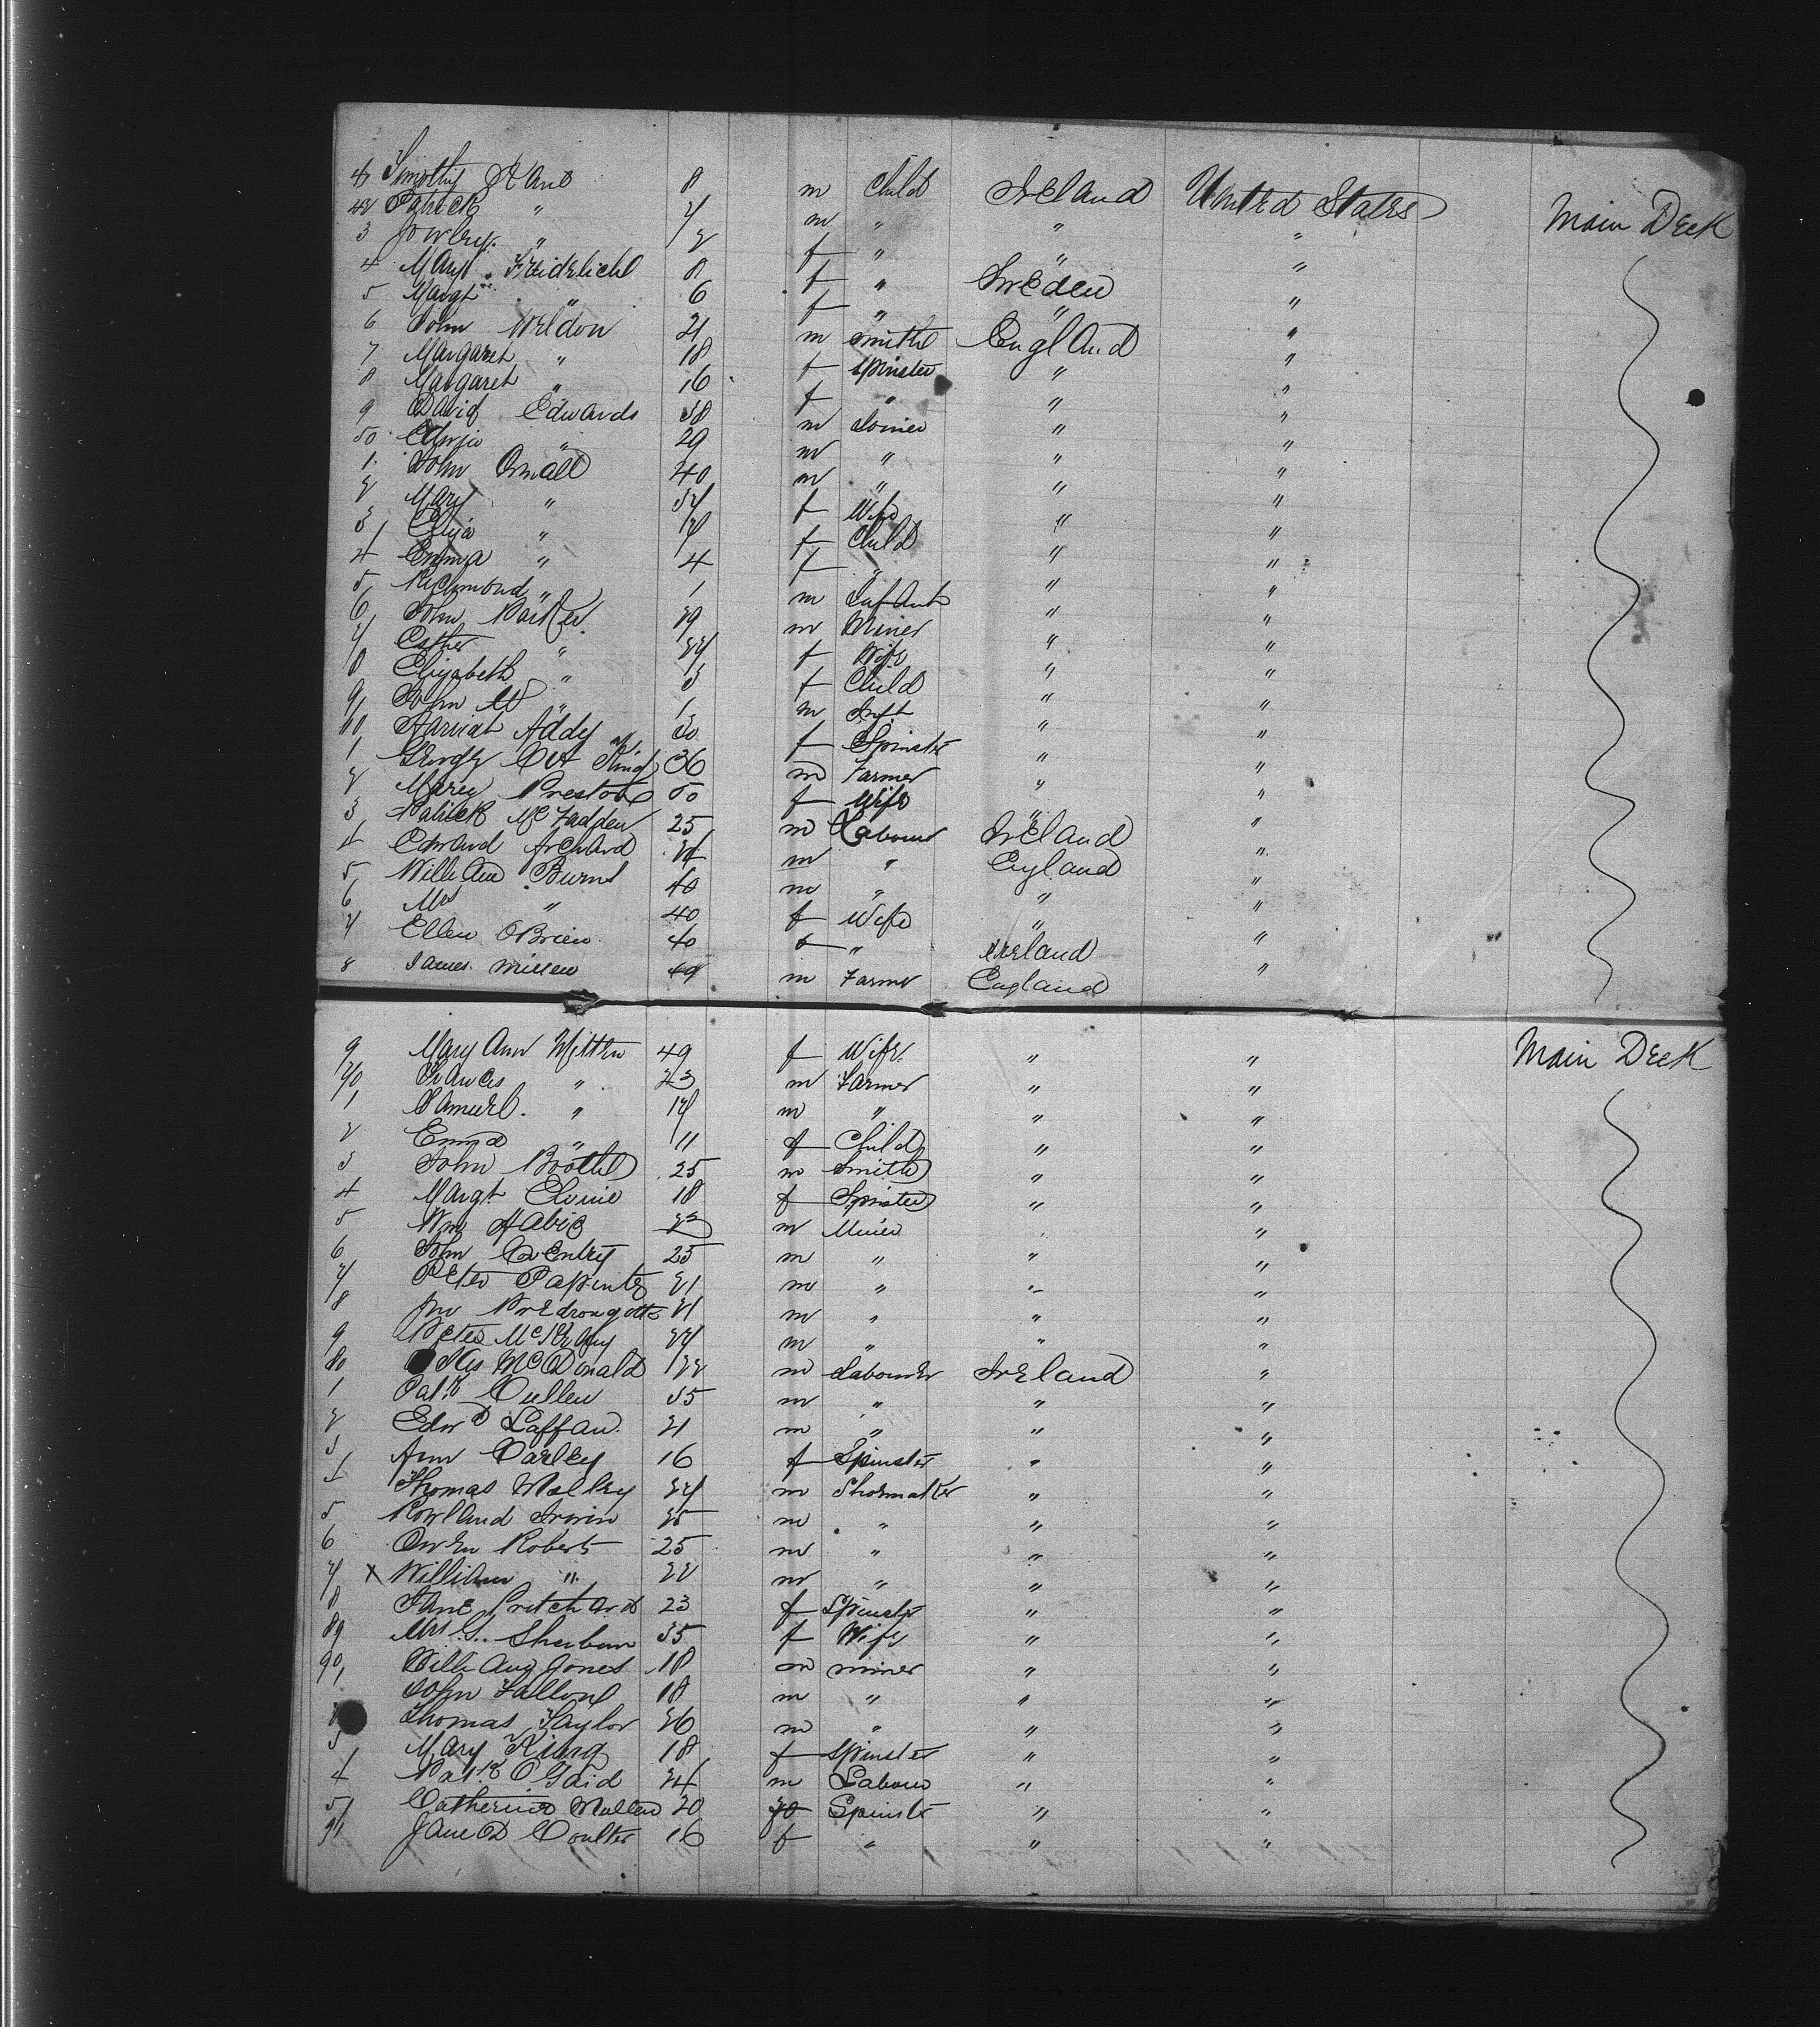 Timothy Kane 8 m Child Ireland United States Main Deck
42 Patrick " 7 m " " "
3 " 2 f " " "
4 Mary 8 f " Sweden "
5 Margt " 6 f " " "
6 John Weldon 21 m Smith England "
7 Margaret " 18 f Spinster " "
8 Margaret " 16 f " " "
9 David Edwards 38 m Joiner " "
50 " 29 m " " "
1 John Small 40 m " " "
2 Mary " 37 f Wife " "
3 Eliza " 17 f Child " "
4 Emma " 4 f " " "
5 Richmond " 1 m Infant " "
6 John 29 m Miner " "
7 Esther " 27 f Wife " "
8 Elizabeth " 3 f Child " "
9 John W " 1 m Inft " "
60 Harriat Addy 30 f Spinster " "
1 George 36 m Farmer " "
2 Mary Preston 50 f Wife " "
3 Patrick McFadden 25 m Labour Ireland "
4 Edward Archard 24 m " England "
5 William Burns 40 m " " "
6 Mrs " 40 f Wife " "
7 Ellen OBrien 40 f " Ireland "
8 James 49 m Farmer England
9 Mary Ann 49 f Wife " " Main Deck
70 Frances " 23 m Farmer " "
1 Samuel " 17 m " " "
2 Emma " 11 f Child " "
3 John Booth 25 m Smith " "
4 Margt 18 f Spinster " "
5 Wm m Miner "
6 John Coventry 25 m " " "
7 Peter 21 m " " "
8 Jno 21 m " " "
9 Peter 27 m " " "
80 McDonald 22 m Labourer Ireland "
1 Patk Cullen 35 m " " "
2 Edwd Laffan 21 m " " "
3 Ann Carley 16 f Spinster " "
4 Thomas Malley 27 m Shoemaker " "
5 Rowland Irwin 25 m " " "
6 Owen Roberts 25 m " " "
7 x William " 22 m " " "
8 Jane Pritchard 23 f Spinster " "
89 Mrs G. 35 f Wife " "
90 William Jones 18 m miner " "
John Fallon 18 m " " "
Thomas Taylor 26 m " " "
3 Mary King 18 f Spinster " "
4 Patk 24 m Labour " "
5 Catherine Mullen 20 Spinster " "
Jane Coulter 16 f " " "